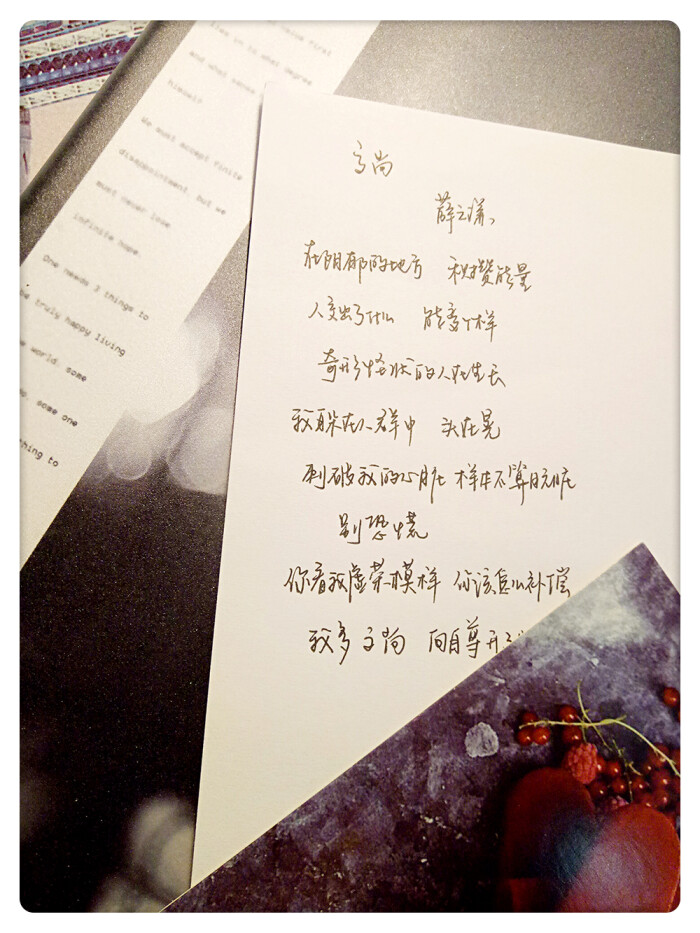 what degree
and what sense
himself?
We must accept finite
disappointment, but we
must never lose
infinite hope.
One needs 3 things to
be truly happy living
world. some
some one
to
高尚
薛之谦
在阴郁的地方 积攒能量
人变出了什么 能多个样
奇形怪状的人在生长
我躲在人群中 头在晃
刺破我的心脏 样本不算肮脏
别恐慌
你看我虚荣模样 你该怎么补偿
我多高尚 向自尊开